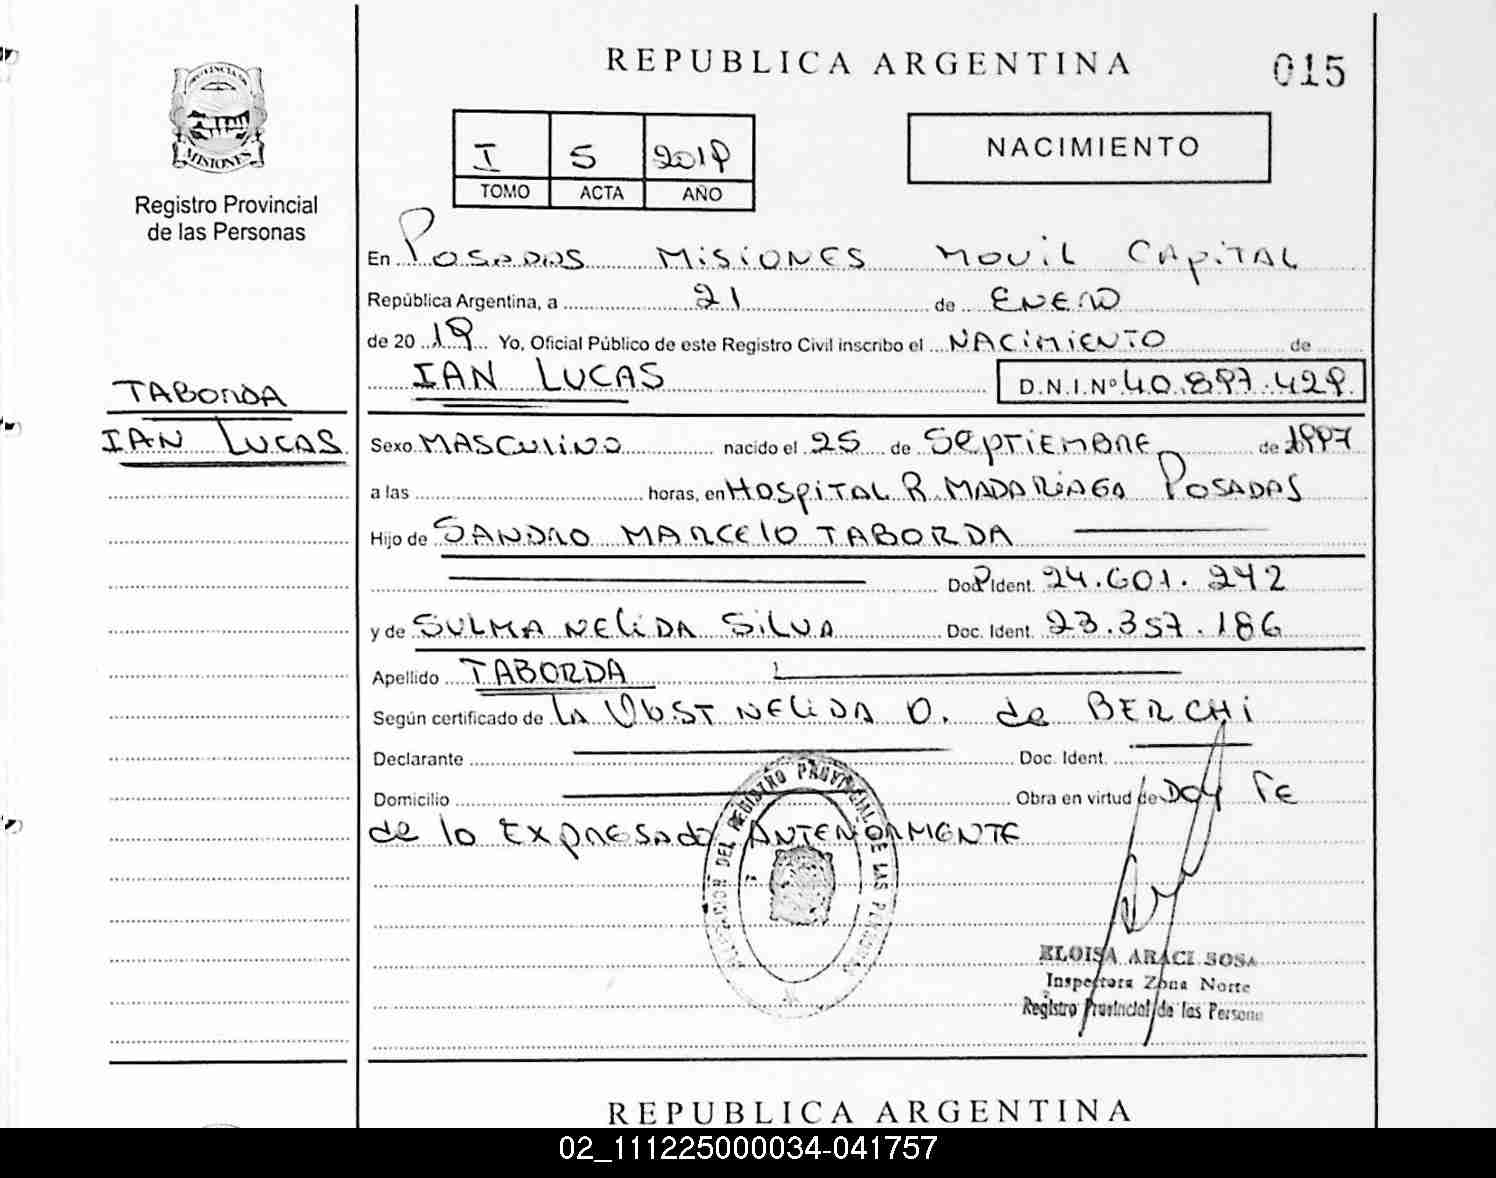 REPUBLICA ARGENTINA
015
PROVINCIA DE
MISIONES
Registro Provincial
de las Personas
I 5 2019
TOMO ACTA AÑO
NACIMIENTO
En Posadas Misiones Movil Capital
República Argentina, a 21 de ENERO
de 20 19 Yo, Oficial Público de este Registro Civil inscribo el NACIMIENTO de
IAN LUCAS D.N.I.Nº 40.897.429
TABORDA
IAN LUCAS
Sexo MASCULINO nacido el 25 de SEPTIEMBRE de 1997
a las horas, en HOSPITAL R. MADARIAGA POSADAS
Hijo de SANDRO MARCELO TABORDA
Doc. Ident. 24.601.242
y de SULMA NELIDA SILVA Doc. Ident. 23.357.186
Apellido TABORDA
Según certificado de la Obst NELIDA O. de BERCHI
Declarante Doc. Ident.
Domicilio Obra en virtud de Doy Fe
de lo Expresado ANTERIORMENTE
DEL REGISTRO PROVINCIAL DE LAS PERSONAS
ELOISA ARACI SOSA
Inspectora Zona Norte
Registro Provincial de las Persona
REPUBLICA ARGENTINA
02_111225000034-041757